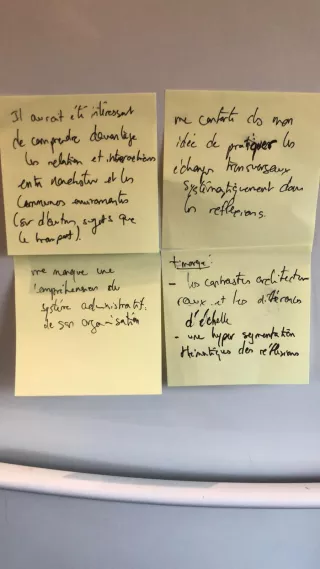 Il aurait été intéressant
de comprendre davantage
les relation et interactions
entre Manchester et les
communes environnantes
(sur d'autres sujets que
le transport).
me conforte ds mon
idée de pratiquer les
échanges transversaux
systématiquement dans
les réflexions.
me manque une
compréhension du
système administratif.
de son organisation
- les contrastes architectu-
raux et les différences
d'échelle
- une hyper segmentation
thématiques des réflexions